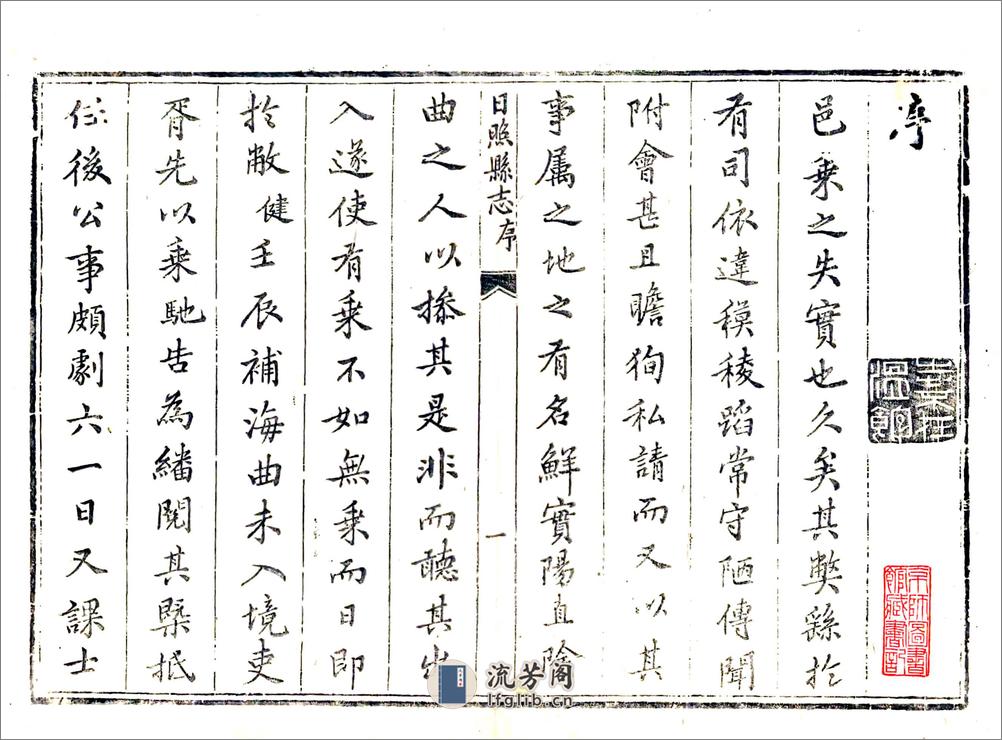 序
邑乗之失實也久矣其弊繇扵
有司依違模稜蹈常守陋傳聞
附會甚且瞻狥私請而又以其
事属之地之有名鮮實陽直陰
日照縣志序
一
曲之人以摻其是非而聽其出
入遂使有乗不如無乗而日即
扵敝健壬辰補海曲未入境吏
胥先以乗馳告為繙閱其槩抵
任後公事頗劇六一日又課士
京師圖書
館藏書記
流芳阁
lfglib.cn